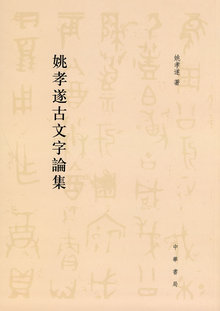 姚孝遂 著
姚孝遂古文字論集
中華書局